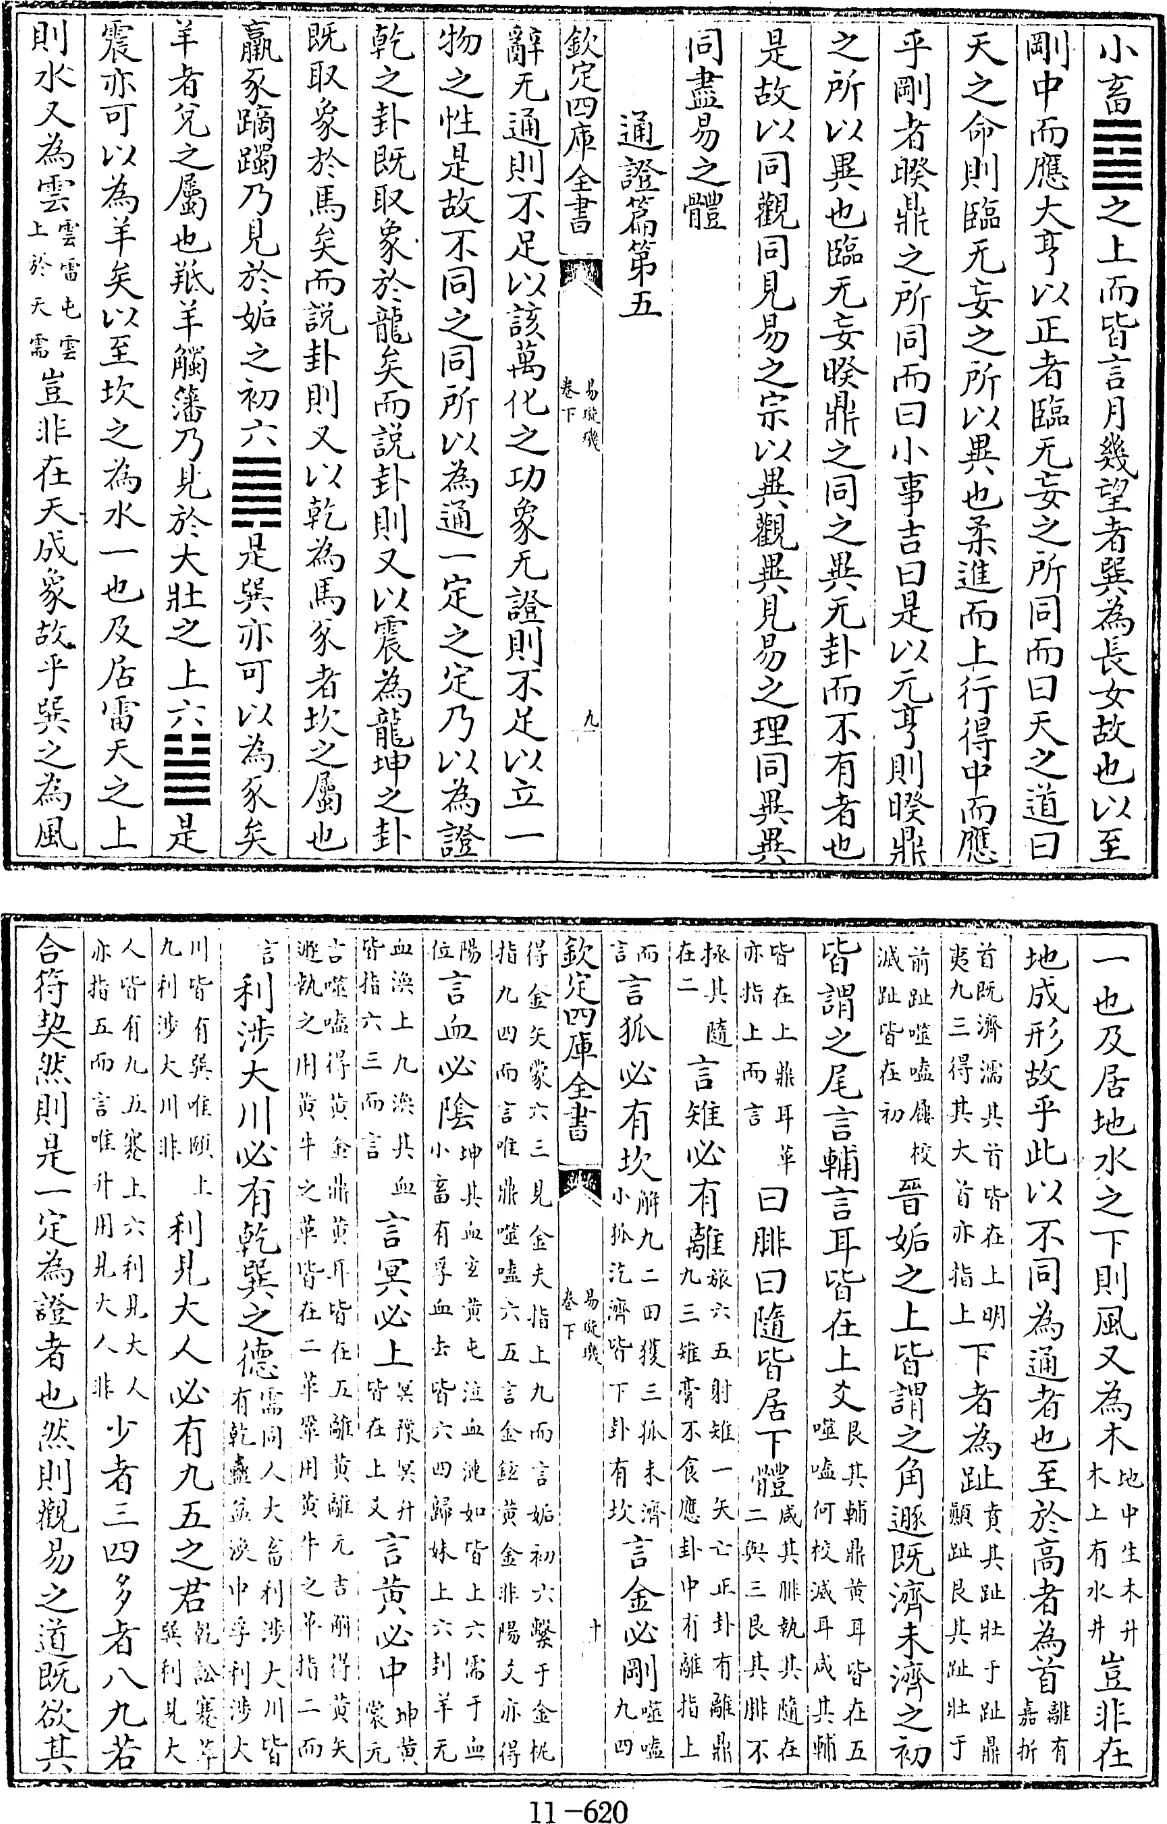 小畜䷈之上而皆言月幾望者巽為長女故也以至
剛中而應大亨以正者臨无妄之所同而曰天之道曰
天之命則臨无妄之所以異也柔進而上行得中而應
乎剛者睽鼎之所同而曰小事吉曰是以元亨則睽鼎
之所以異也臨无妄睽鼎之同之異无卦而不有者也
是故以同觀同見易之宗以異觀異見易之理同異異
同盡易之體
通證篇第五
欽定四庫全書 易璇璣 卷下 九
辭无通則不足以該萬化之功象无證則不足以立一
物之性是故不同之同所以為通一定之定乃以為證
乾之卦既取象於龍矣而說卦則又以震為龍坤之卦
既取象於馬矣而說卦則又以乾為馬豕者坎之屬也
羸豕蹢躅乃見於姤之初六䷫是巽亦可以為豕矣
羊者兌之屬也羝羊觸藩乃見於大壯之上六䷡是
震亦可以為羊矣以至坎之為水一也及居雷天之上
則水又為雲雲雷屯雲上於天需豈非在天成象故乎巽之為風
一也及居地水之下則風又為木地中生木升木上有水井豈非在
地成形故乎此以不同為通者也至於高者為首離有嘉折
首既濟濡其首皆在上明夷九三得其大首亦指上下者為趾賁其趾壯于趾鼎顛趾艮其趾壯于
前趾噬嗑屨校滅趾皆在初晉姤之上皆謂之角遯既濟未濟之初
皆謂之尾言輔言耳皆在上爻艮其輔鼎黃耳皆在五噬嗑何校滅耳咸其輔
皆在上鼎耳革亦指上而言曰腓曰隨皆居下體咸其腓執其隨在二與三艮其腓不
拯其隨在二言雉必有離旅六五射雉一矢亡正卦有離鼎九三雉膏不食應卦中有離指上
而言言狐必有坎解九二田獲三狐未濟小狐汔濟皆下卦有坎言金必剛噬嗑九四
欽定四庫全書 易璇璣 卷下 十
得金矢蒙六三見金夫指上九而言姤初六繫于金柅指九四而言唯鼎噬嗑六五言金鉉黃金非陽爻亦得
陽位言血必陰坤其血玄黃屯泣血漣如皆上六需于血小畜有孚血去皆六四歸妹上六刲羊无
血渙上九渙其血皆指六三而言言冥必上冥豫冥升皆在上爻言黃必中坤黃裳元
吉噬嗑得黃金鼎黃耳皆在五離黃離元吉解得黃矢遯執之用黃牛之革皆在二革鞏用黃牛之革指二而
言利涉大川必有乾巽之德需同人大畜利涉大川皆有乾蠱益渙中孚利涉大
川皆有巽唯頤上九利涉大川非利見大人必有九五之君乾訟蹇萃巽利見大
人皆有九五蹇上六利見大人亦指五而言唯升用見大人非少者三四多者八九若
合符契然則是一定為證者也然則觀易之道既欲其
11-620